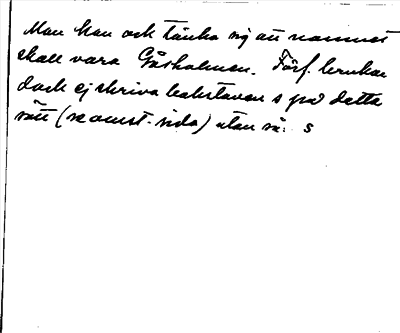 Man kan ock tänka sig att namnet
skall vara Gåsholmen. Förf. brukar
dock ej skriva bokstaven s på detta
sätt (se omst. sida) utan så: s